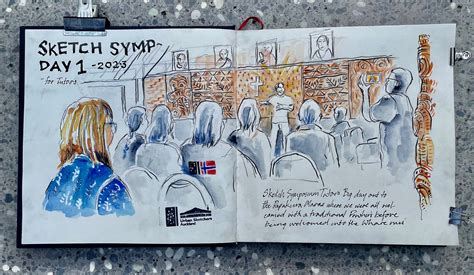 SKETCH SYMP
DAY 1 - 2023
- for Tutors
Urban Sketchers
Auckland
Sketch Symposium Tutors Big day out to
the Papakura Marae where we were all wel-
comed with a traditional Powhiri before
being welcomed into the Whare nui